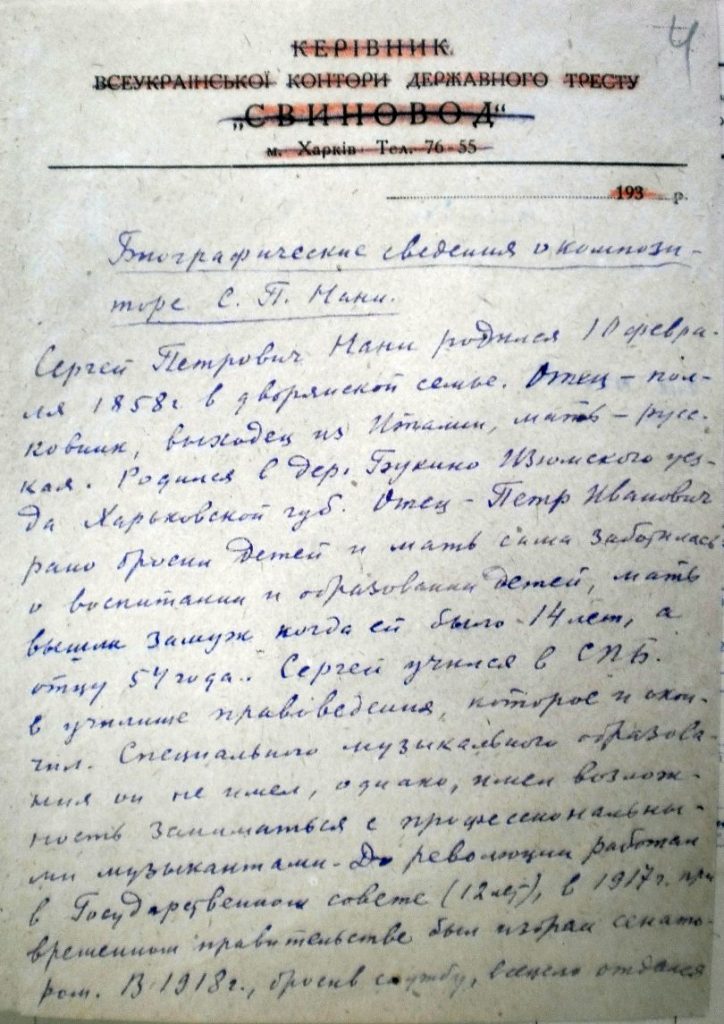 4
КЕРІВНИК
ВСЕУКРАІНСЬКОЇ КОНТОРИ ДЕРЖАВНОГО ТРЕСТУ
„СВИНОВОД“
м. Харків Тел. 76-55
193 р.
Биографические сведения о компози-
торе С. П. Нани.
Сергей Петрович Нани родился 10 февра-
ля 1858 г. в дворянской семье. Отец – пол-
ковник, выходец из Италии, мать – русс-
кая. Родился в дер. Букино Изюмского уез-
да Харьковской губ. Отец – Петр Иванович
рано бросил детей и мать сама заботилась
о воспитании и образовании детей, мать
вышла замуж когда ей было 14 лет, а
отцу 54 года. Сергей учился в СПБ.
в училище правоведения, которое и окон-
чил. Специального музыкального образова-
ния он не имел, однако, имел возмож-
ность заниматься с профессиональны-
ми музыкантами. До революции работал
в Государственном совете (12 лет), в 1917 г. при
временном правительстве был избран сенато-
ром. В 1918 г., бросив службу, всецело отдался